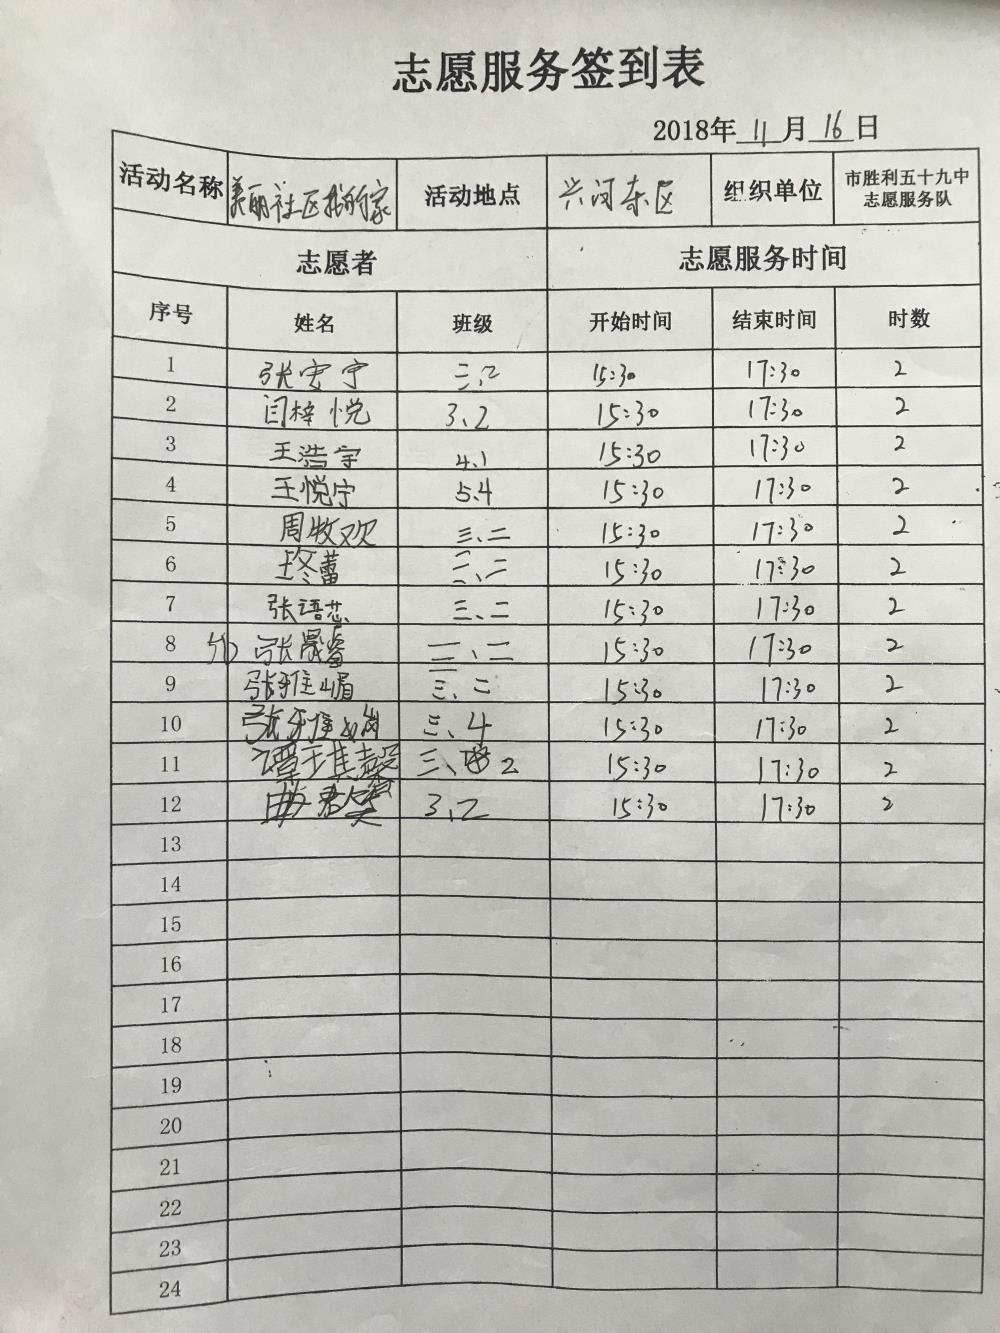 志愿服务签到表
2018年 11 月 16 日
活动名称 美丽社区我的家 活动地点 兴河东区 组织单位 市胜利五十九中志愿服务队
志愿者 志愿服务时间
序号 姓名 班级 开始时间 结束时间 时数
1 张宏宇 三.2 15:30 17:30 2
2 闫梓悦 3、2 15:30 17:30 2
3 王浩宇 4.1 15:30 17:30 2
4 王悦宁 5.4 15:30 17:30 2
5 周牧欢 三、二 15:30 17:30 2
6 蕾 三、二 15:30 17:30 2
7 张语芯 三、二 15:30 17:30 2
8 张晟睿 三、二 15:30 17:30 2
9 张雅嵋 三、二 15:30 17:30 2
10 张雅 三、4 15:30 17:30 2
11 谭琪馨 三、2 15:30 17:30 2
12 3、2 15:30 17:30 2
13
14
15
16
17
18
19
20
21
22
23
24